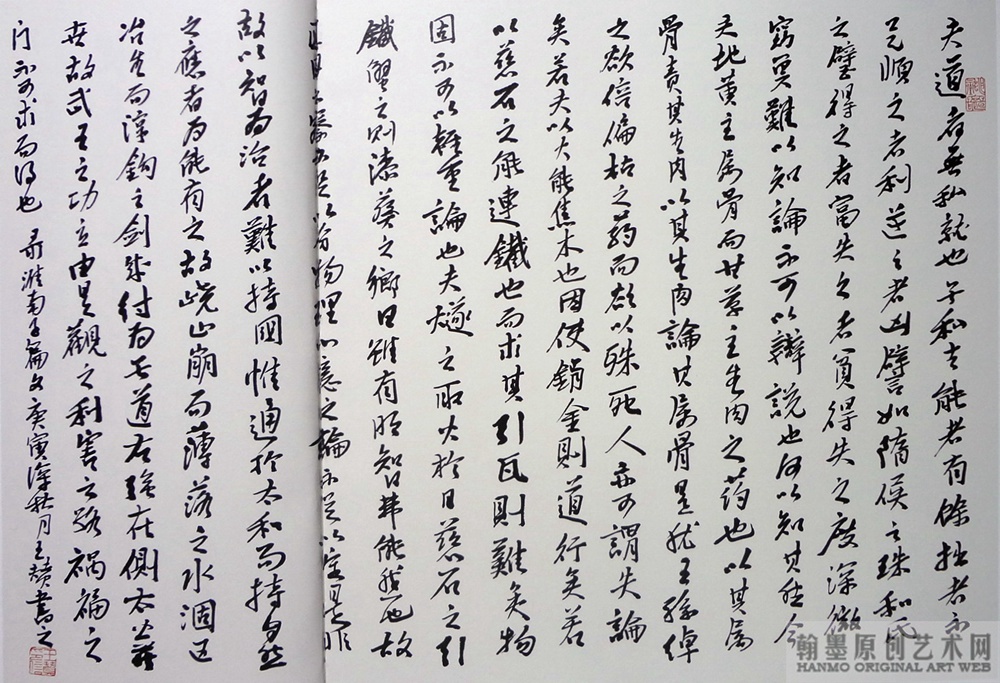 夫道者無私就也無私去能者有餘拙者不
足順之者利逆之者凶譬如隋侯之珠和氏
之璧得之者富失之者貧得失之度深微
窈冥難以知論不可以辯說也何以知其然今
夫地黄主屬骨而甘草主生肉之药也以其屬
骨責其生肉以其生肉論其屬骨是犹王孫绰
之欲倍偏枯之药而欲以殊死人亦可謂失論
矣若夫以火能焦木也因使銷金則道行矣若
以慈石之能連鐵也而求其引瓦則難矣物
固不可以輕重論也夫燧之取火於日慈石之引
鐵蟹之則漆葵之鄉日雖有明智弗能然也故
耳目之察不足以分物理心意之論不足以定是非
故以智為治者難以持國惟通於太和而持自然
之應者为能有之故嶢山崩而薄落之水涸区
冶生而淳鈎之劍成紂为无道左強在側太公并
世故武王之功立由是觀之利害之路禍福之
门不可求而得也 录淮南子篇文庚寅深秋月王書之
翰墨原创艺术网
HANMO ORIGINAL ART WEB